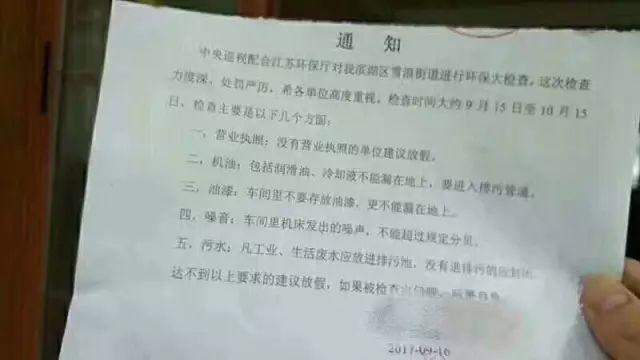 通 知
中央巡视配合江苏环保厅对我滨湖区雪浪街道进行环保大检查，这次检查
力度深，处罚严厉，希各单位高度重视，检查时间大约9月15日至10月15
日，检查主要是以下几个方面：
一，营业执照：没有营业执照的单位建议放假。
二，机油：包括润滑油、冷却液不能漏在地上，要进入排污管道。
三，油漆：车间里不要存放油漆，更不能漏在地上。
四，噪音：车间里机床发出的噪声，不能超过规定分贝。
五，污水：凡工业、生活废水应放进排污池，没有进排污的应
达不到以上要求的建议放假，如果被检查出问题，后果自负
2017-09-10